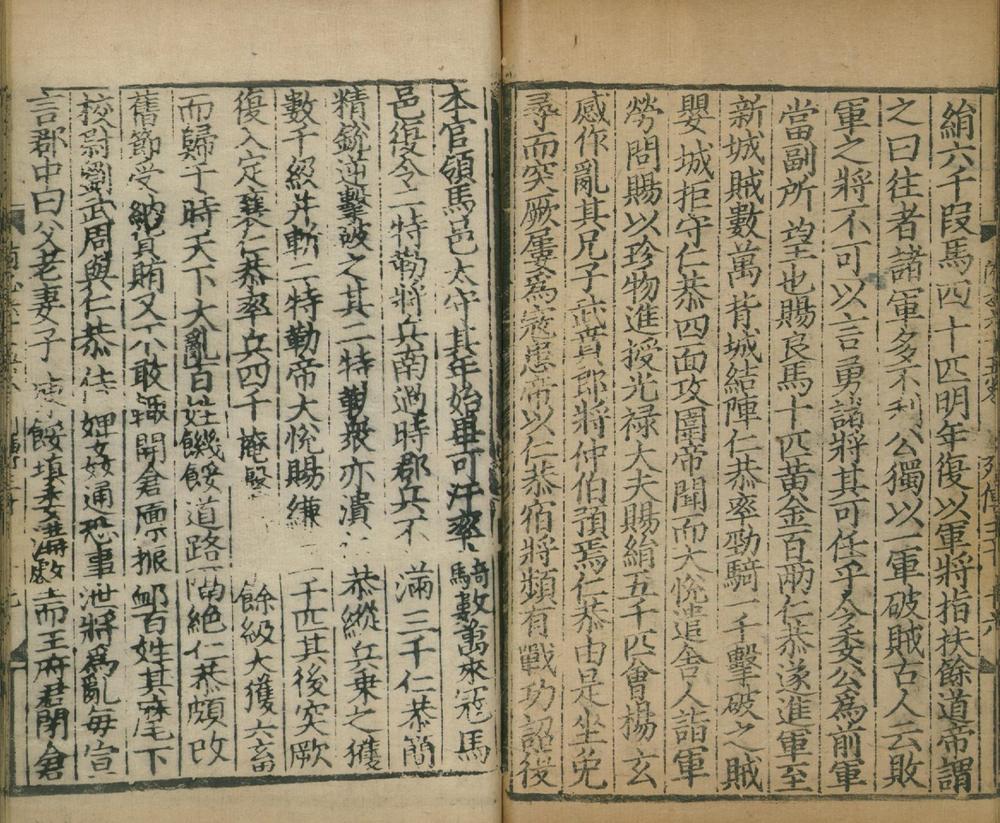 絹六千段馬四十匹明年復以軍將指扶餘道帝謂
之曰往者諸軍多不利公獨以一軍破賊古人云敗
軍之將不可以言勇諸將其可任乎今委公為前軍
當副所望也賜良馬十匹黃金百兩仁恭遂進軍至
新城賊數萬背城結陣仁恭率勁騎一千擊破之賊
嬰城拒守仁恭四面攻圍帝聞而大悅遣舍人詣軍
勞問賜以珍物進授光祿大夫賜絹五千匹會楊玄
感作亂其兄子武賁郎將仲伯預焉仁恭由是坐免
尋而突厥屢為寇患帝以仁恭宿將頻有戰功詔復
本官領馬邑太守其年始畢可汗率騎數萬來寇馬
邑復令二特勒將兵南過時郡兵不滿三千仁恭簡
精銳逆擊破之其二特勒眾亦潰仁恭縱兵乘之獲
數千級并斬二特勒帝大悅賜縑千匹其後突厥
復入定襄仁恭率兵四千掩擊餘級大獲六畜
而歸于時天下大亂百姓饑餒道路隔絕仁恭頗改
舊節受納貨賄又不敢輒開倉廩賑卹百姓其麾下
校尉劉武周與仁恭侍婢姦通恐事泄將為亂每宣
言郡中曰父老妻子凍餒填委溝壑而王府君閉倉